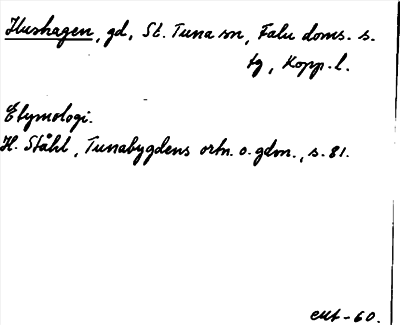 Hushagen, gd, St. Tuna sn, Falu doms. s.
tg, Kopp. l.
Etymologi.
H. Ståhl, Tunabygdens ortn. o. gdn., s. 81.
-60.